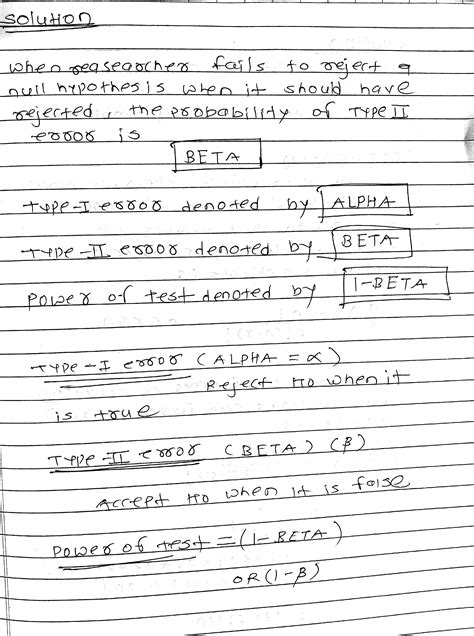 Solution
When reasearcher fails to reject a
null hypothesis when it should have
rejected, the probability of TYPE II
error is
BETA
type-I error denoted by ALPHA
TYPE-II error denoted by BETA
Power of test denoted by 1-BETA
TYPE-I error (ALPHA = α)
Reject H0 when it
is true
TYPE-II error (BETA) (β)
Accept H0 when it is false
Power of test = (1-BETA)
OR (1-β)